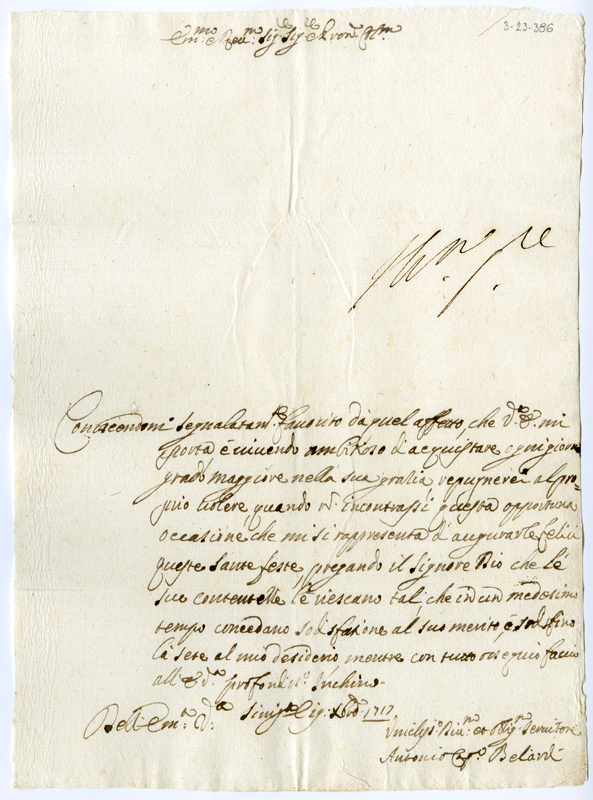 3-23-386
Em.mo e Rev.mo Sig.re Sig.re e Pron.
Conoscendomi segnalatam.te favorito da quel affetto, che V. E. mi
porta e vivendo ambitioso d'acquistare ogni giorno
grado maggiore nella sua gratia repugnerei al pro-
prio volere, quando nõ incontrassi questa opportuna
occasione, che mi si rappresenta d'augurarle felici
queste sante feste pregando il Signore Dio che le
sue contentezze le riescano tali, che in un medesimo
tempo concedano sodisfatione al suo merito, e sodisfino
la sete al mio desiderio, mentre con tutto ossequio faccio
all' E. V. profondiss.o Inchino.
Dell' Em.a V.a
1717
Umiliss.o Div.mo et Oblig.mo Servitore
Antonio Belardi